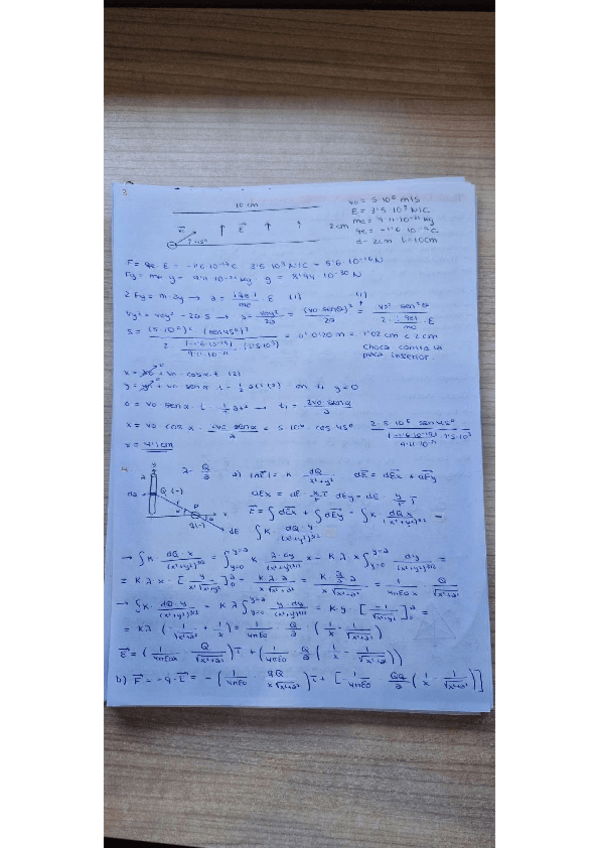 3
10 cm
v0 = 5·10⁶ m/s
E = 3'5·10³ N/C
me = 9'11·10⁻³¹ kg
qe = -1'6·10⁻¹⁹ C
d = 2cm L = 10cm
2 cm
E
45°
F = qe·E = -1'6·10⁻¹⁹ C · 3'5·10³ N/C = 5'6·10⁻¹⁶ N
Fg = me·g = 9'11·10⁻³¹ kg · g = 8'94·10⁻³⁰ N
Σ Fy = m·ay → a = |qe|/me · E (1)
vy² = v0y² - 2a·s → s = v0y²/2a = (v0·senα)²/2a = v0²·sen²α / 2·|qe|/me·E
S = (5·10⁶)²·(sen45°)² / 2·(1-1'6·10⁻¹⁹|)/(9'11·10⁻³¹)·(3'5·10³) = 0'0102 m = 1'02 cm < 2 cm
choca contra la
placa inferior
x = x0 + v0·cosα·t (2)
y = y0 + v0·senα·t - 1/2 a t² (3) en t1 y=0
0 = v0·senα·t - 1/2 at² → t1 = 2v0·senα/a
x = v0·cosα · 2v0·senα/a = 5·10⁶·cos45°
x = 4'1 cm
4
λ = Q/a a) |dE| = K · dQ/(x²+y²) dE = dEx + dEy
dEx = dE · x/r i dEy = dE · y/r j
Q (-)
E = ∫dEx + ∫dEy = ∫K · dQ·x/(x²+y²)^(3/2) -
∫K · dQ·y/(x²+y²)^(3/2)
dE
→ ∫K · dQ·x/(x²+y²)^(3/2) = ∫_{y=0}^{y=a} K · λ·dy/(x²+y²)^(3/2) x = K λ x ∫_{y=0}^{y=a} dy/(x²+y²)^(3/2) =
= K·λ·x · [y/x²√(x²+y²)]₀ᵃ = K·λ·a/x√(x²+a²) = K·Q/a·a/x√(x²+a²) = 1/4πε0x · Q/√(x²+a²)
→ ∫K · dQ·y/(x²+y²)^(3/2) = K λ ∫_{y=0}^{y=a} y·dy/(x²+y²)^(3/2) = K·y · [-1/√(x²+y²)]₀ᵃ =
= K λ (-1/√(x²+a²) + 1/x) = 1/4πε0 · Q/a · (1/x - 1/√(x²+a²))
E = (1/4πε0x · Q/√(x²+a²)) i + (1/4πε0 · Q/a · (1/x - 1/√(x²+a²)))
b) F = -q·E = -(1/4πε0 · qQ/x√(x²+a²)) i + [-1/4πε0 · qQ/a (1/x - 1/√(x²+a²))]